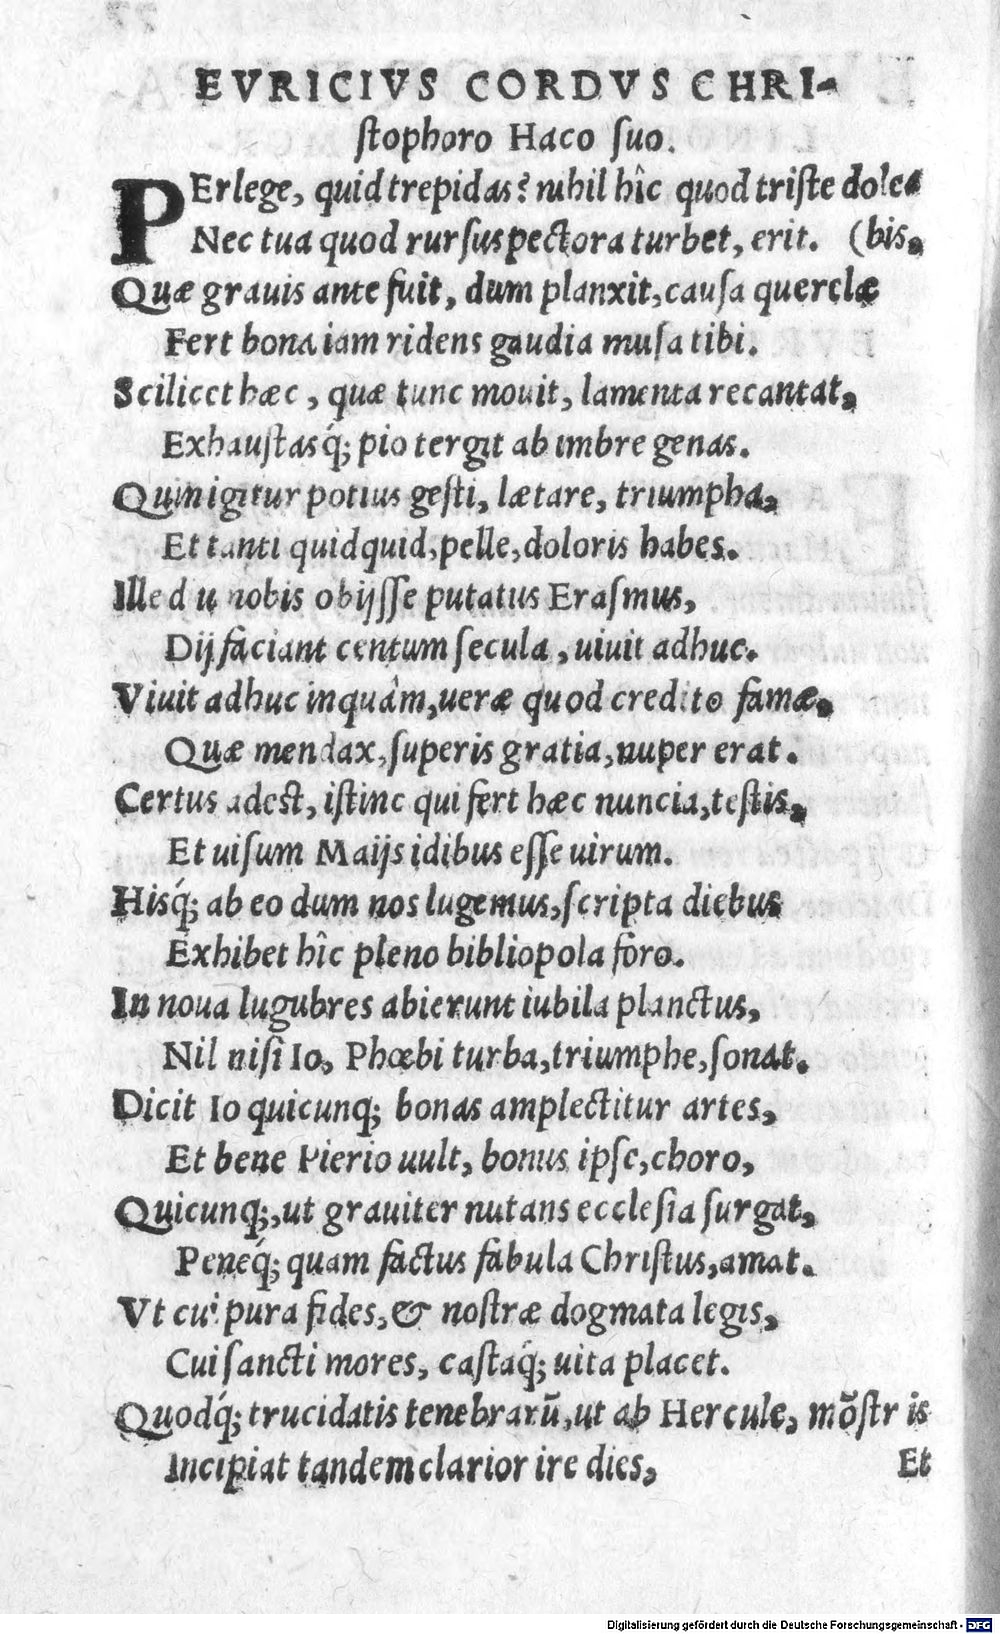 EVRICIVS CORDVS CHRI-
ſtophoro Haco ſuo.
PErlege, quid trepidas? nihil hîc quod triſte dole-
Nec tua quod rurſus pectora turbet, erit. (bis,
Quæ grauis ante fuit, dum planxit, cauſa querelæ
Fert bona iam ridens gaudia muſa tibi.
Scilicet hæc, quæ tunc mouit, lamenta recantat,
Exhauſtasq́; pio tergit ab imbre genas.
Quin igitur potius geſti, lætare, triumpha,
Et tanti quidquid, pelle, doloris habes.
Ille diu nobis obijſſe putatus Eraſmus,
Dij faciant centum ſecula, uiuit adhuc.
Viuit adhuc inquâm, ueræ quod credito famæ,
Quæ mendax, ſuperis gratia, nuper erat.
Certus adeſt, iſtinc qui fert hæc nuncia, teſtis,
Et uiſum Maijs idibus eſſe uirum.
Hisq́; ab eo dum nos lugemus, ſcripta diebus
Exhibet hîc pleno bibliopola foro.
In noua lugubres abierunt iubila planctus,
Nil niſi Io, Phœbi turba, triumphe, ſonat.
Dicit Io quicunq; bonas amplectitur artes,
Et bene Pierio uult, bonus ipſe, choro,
Quicunq;, ut grauiter nutans eccleſia ſurgat,
Peneq́; quam factus fabula Chriſtus, amat.
Vt cui pura fides, & noſtræ dogmata legis,
Cui ſancti mores, caſtaq́; uita placet.
Quodq́; trucidatis tenebrarū, ut ab Hercule, mōſtris
Incipiat tandem clarior ire dies,
Et
Digitalisierung gefördert durch die Deutsche Forschungsgemeinschaft - DFG